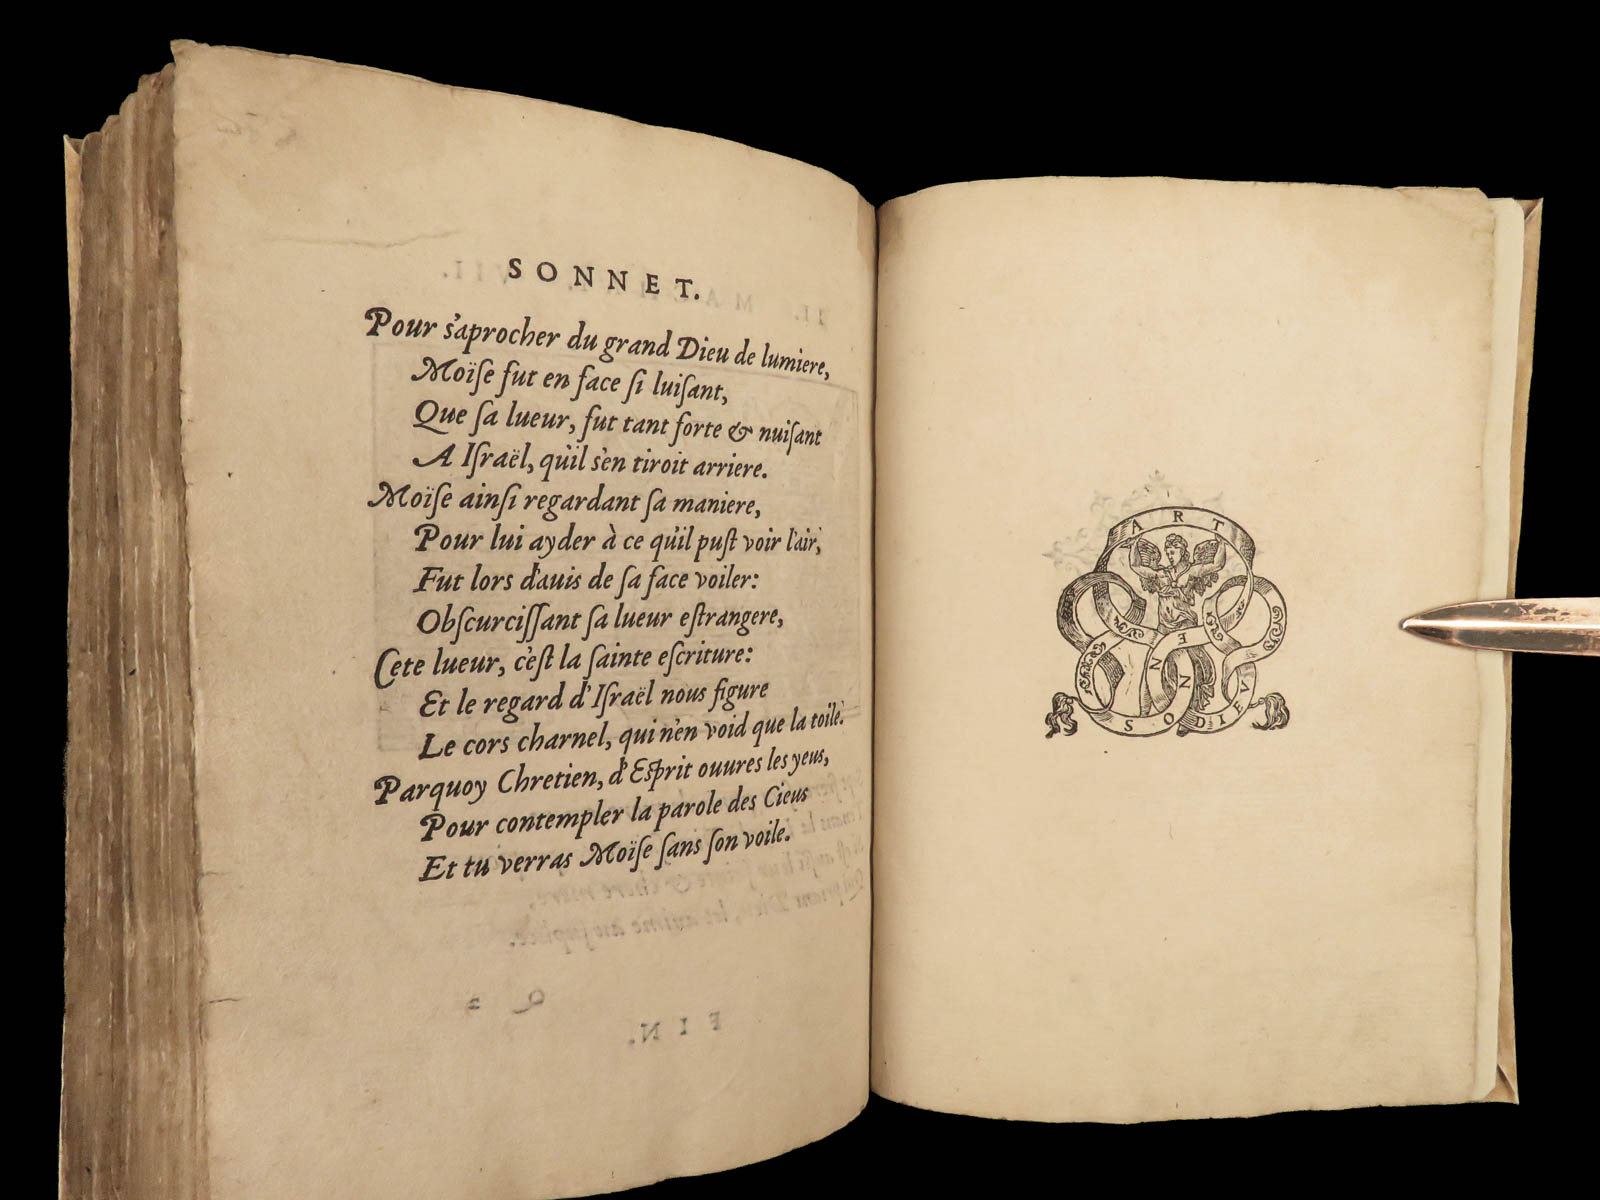 SONNET.
Pour s'aprocher du grand Dieu de lumiere,
Moïſe fut en face ſi luiſant,
Que ſa lueur, fut tant forte & nuiſant
A Iſraël, qu'il s'en tiroit arriere.
Moïſe ainſi regardant ſa maniere,
Pour lui ayder à ce qu'il puſt voir l'air,
Fut lors d'auis de ſa face voiler:
Obſcurciſſant ſa lueur eſtrangere,
Cete lueur, c'eſt la ſainte eſcriture:
Et le regard d'Iſraël nous figure
Le cors charnel, qui n'en void que la toile.
Parquoy Chretien, d'Eſprit ouures les yeus,
Pour contempler la parole des Cieus
Et tu verras Moïſe ſans ſon voile.
SON ART EN DIEV